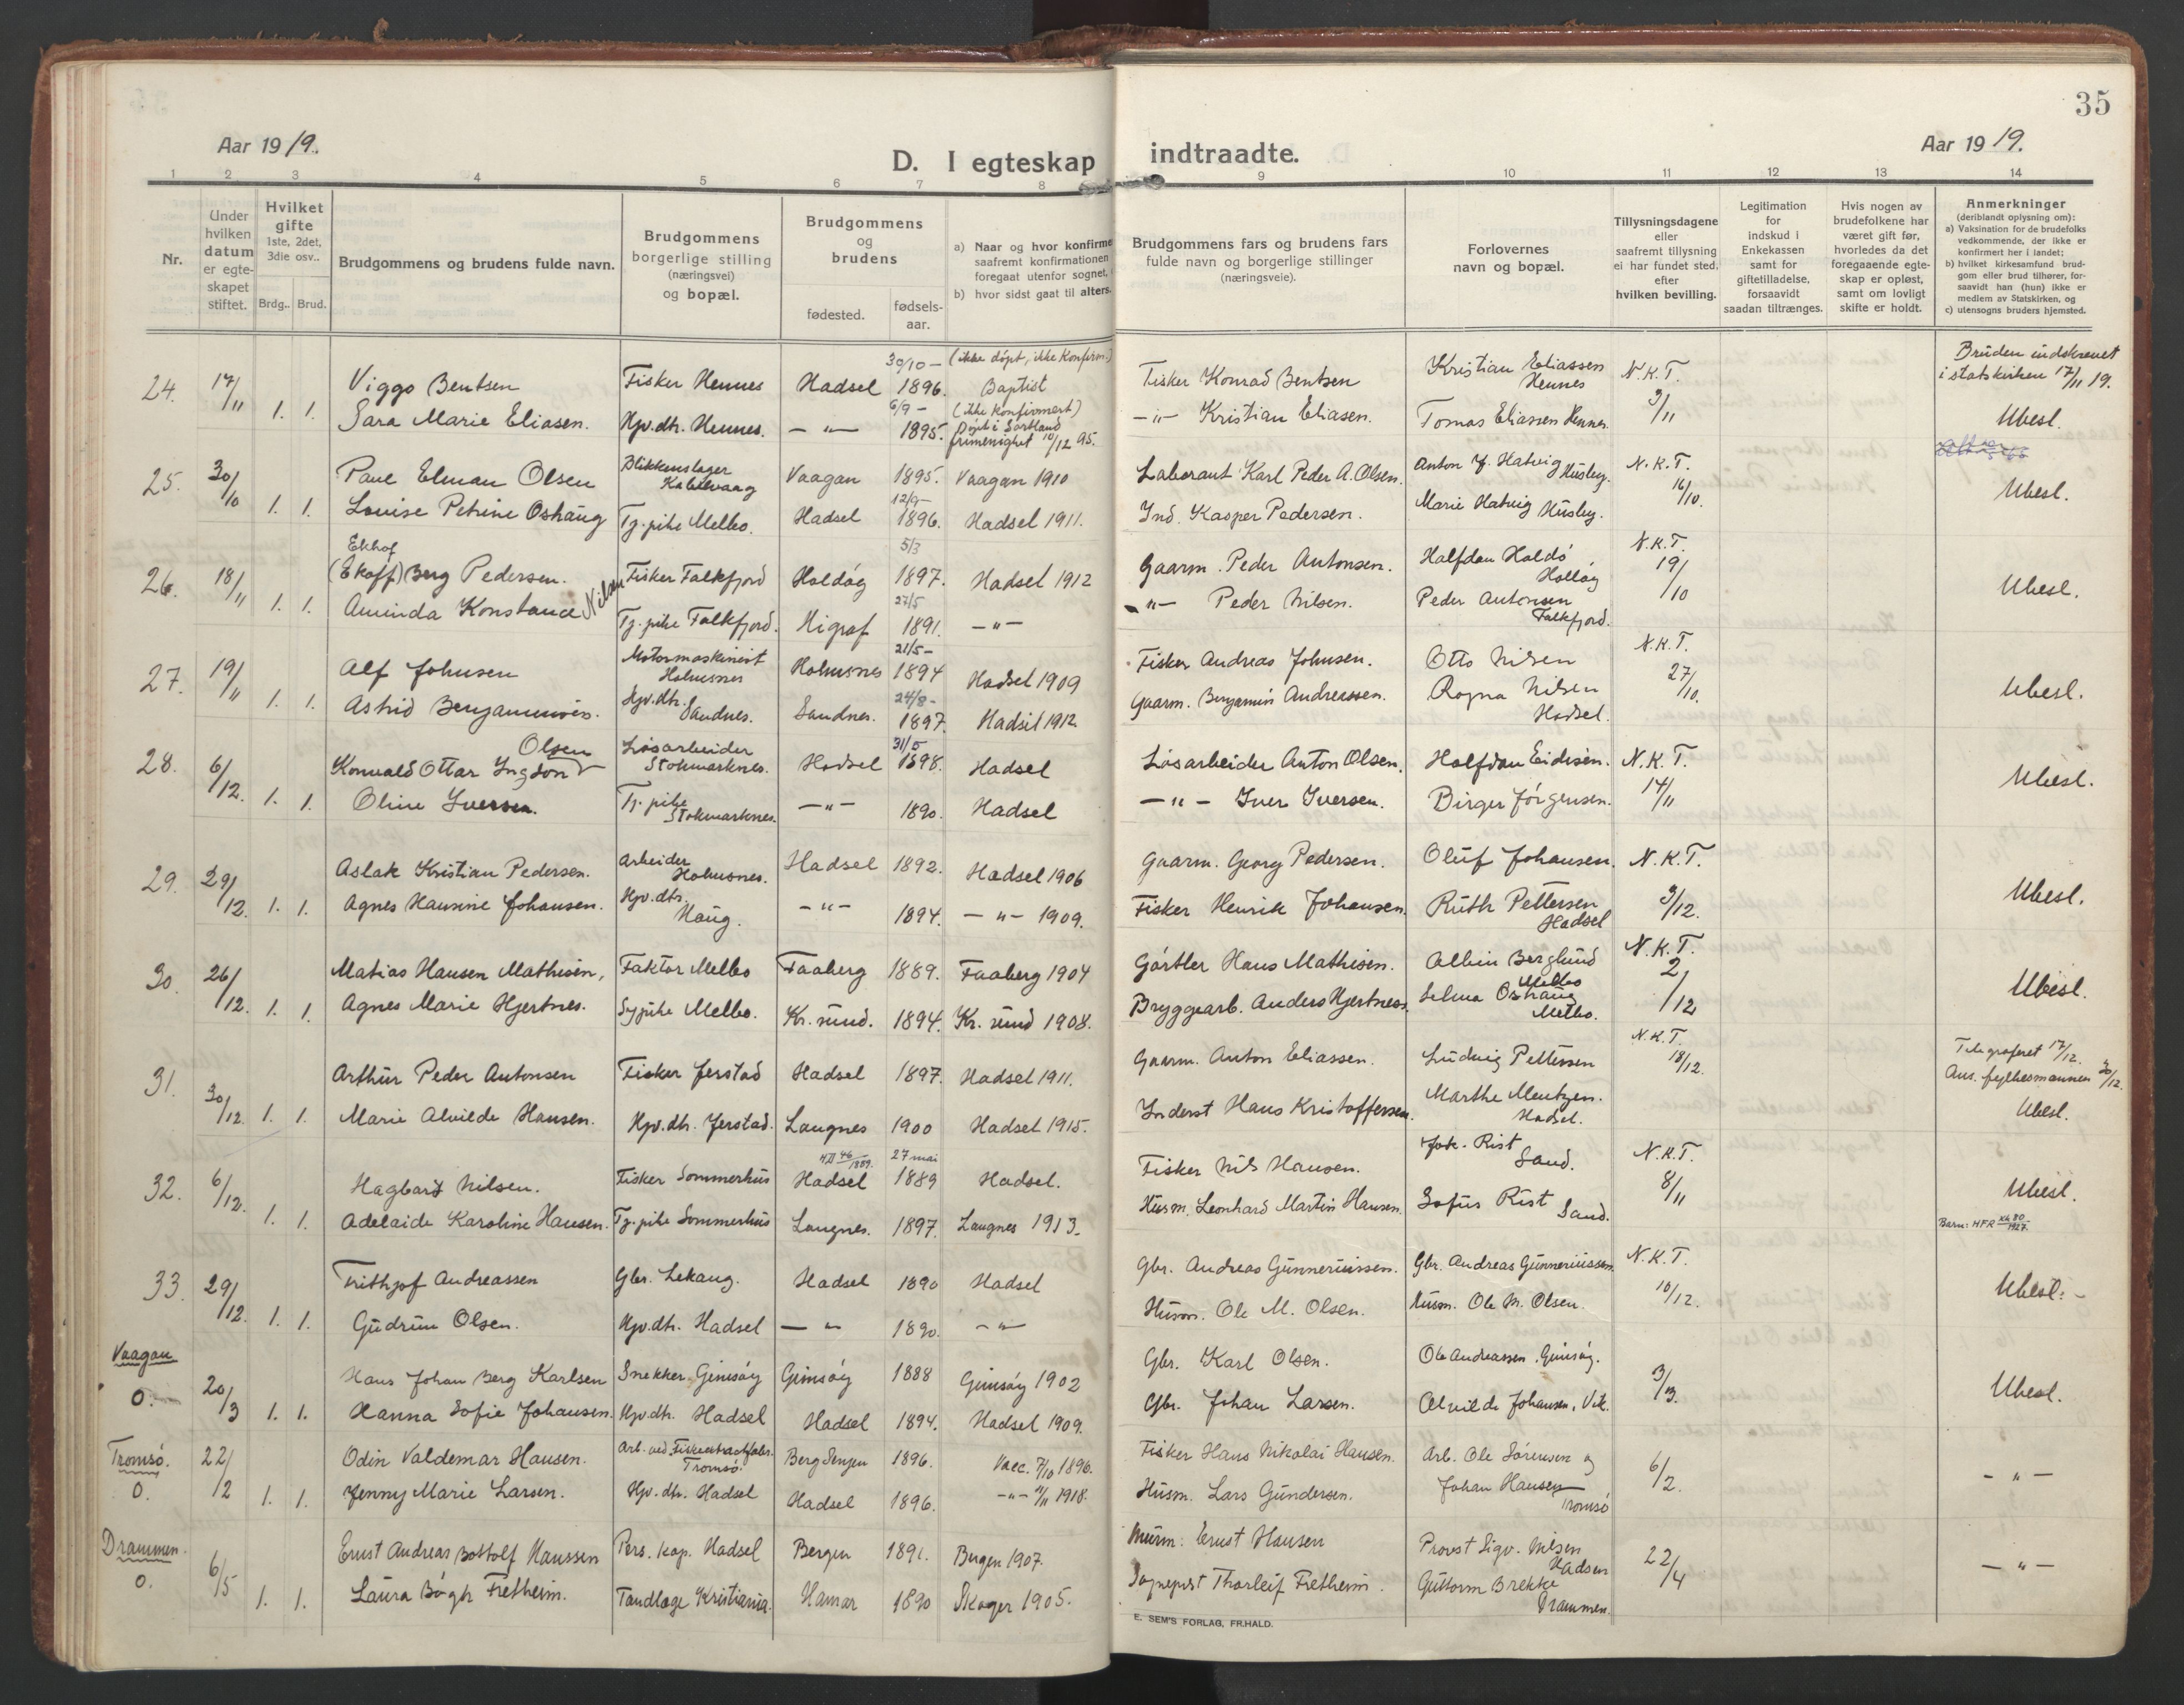 35
Aar 1919.
Aar 1919.
D. I egteskap indtraadte.
1 2 3 4 5 6 7 8 9 10 11 12 13 14
Nr.
Under hvilken datum er egteskapet stiftet.
Hvilket gifte 1ste, 2det, 3die osv..
Brdg.. Brud.
Brudgommens og brudens fulde navn.
Brudgommens borgerlige stilling (næringsvei) og bopæl.
Brudgommens og brudens
fødested.
fødsels-aar.
a) Naar og hvor konfirme
saafremt konfirmationen
foregaat utenfor sognet,
b) hvor sidst gaat til alters.
Brudgommens fars og brudens fars fulde navn og borgerlige stillinger (næringsveie).
Forlovernes navn og bopæl.
Tillysningsdagene eller saafremt tillysning ei har fundet sted, efter hvilken bevilling.
Legitimation for indskud i Enkekassen samt for giftetilladelse, forsaavidt saadan tiltrænges.
Hvis nogen av brudefolkene har været gift før, hvorledes da det foregaaende egteskap er opløst, samt om lovligt skifte er holdt.
Anmerkninger
(deriblandt oplysning om):
a) Vaksination for de brudefolks vedkommende, der ikke er konfirmert her i landet;
b) hvilket kirkesamfund brudgom eller brud tilhører, forsaavidt han (hun) ikke er medlem av Statskirken, og
c) utensogns bruders hjemsted.
24. 17/11 1. 1.
Viggo Bentsen Fisker Hennes Hadsel 30/10 - 1896. (ikke døpt, ikke Konfirm.) Baptist Fisker Konrad Bentsen Kristian Eliassen Hennes N.K.T. Bruden indskrevet i statskirken 17/11 19.
Sara Marie Eliasen. Hjv.dtr. Hennes. -"- 6/9 - 1895. (ikke Konfirmert) Døpt i Sortland frimenighet 10/12 95. -"- Kristian Eliasen. Tomas Eliassen Hennes. 9/11 Ubesl.
25. 30/10 1. 1.
Paul Elman Olsen Blikkenslager Kabelvaag Vaagan 1895. Vaagan 1910 Laborant Karl Peder A. Olsen. Anton J. Hatvig Husby. N.K.T.
Louise Petrine Oshaug Tj.pike Melbo. Hadsel 12/9- 1896. Hadsel 1911. Ind. Kasper Pedersen. Marie Hatvig Husby. 16/10. Ubesl.
26. 18/11 1. 1.
Ekhof
(Ekoff) Berg Pedersen. Fisker Falkfjord Haldøy 5/3 1897. Hadsel 1912 Gaarm. Peder Antonsen. Halfdan Haldø Holløy N.K.T. 19/10
Aminda Konstance Nilsen Tj.pike Falkfjord. Migraf 27/5 1891. -"- -"- Peder Nilsen. Peder Antonsen Falkfjord. Ubesl.
27. 19/11 1. 1.
Alf Johnsen Motormaskinist Holmsnes Holmsnes 21/5- 1894 Hadsel 1909 Fisker Andreas Johnsen. Otto Nilsen N.K.T.
Astrid Benjaminsen. Hjv.dtr. Sandnes. Sandnes. 24/8- 1897. Hadsel 1912 Gaarm. Benjamin Andreassen. Ragna Nilsen Hadsel. 27/10. Ubesl.
28. 6/12. 1. 1.
Konvald Ottar Ingson Olsen Løsarbeider Stokmarknes. Hadsel 31/5 1898. Hadsel Løsarbeider Anton Olsen. Halfdan Eidissen. N.K.T.
Oline Iversen. Tj.pike Stokmarknes. -"- 1890. Hadsel -"- Iver Iversen. Birger Jørgensen. 14/11 Ubesl.
29. 29/12. 1. 1.
Aslak Kristian Pedersen. Arbeider Holmsnes. Hadsel 1892. Hadsel 1906 Gaarm. Georg Pedersen. Oluf Johansen. N.K.T.
Agnes Hansine Johansen. Hjv.dtr. Haug. -"- 1894. -"- 1909. Fisker Henrik Johansen. Ruth Pettersen Hadsel 9/12. Ubesl.
30. 26/12. 1. 1.
Matias Hansen Mathisen, Faktor Melbo Faaberg 1889. Faaberg 1904 Gørtler Hans Mathisen. Albin Berglund Melbo N.K.T.
Agnes Marie Hjertnes. Sypike Melbo. Kr.sund. 1894. Kr.sund 1908. Bryggearb. Anders Hjertnes. Selma Oshaug Melbo. 2/12 Ubesl.
31. 30/12. 1. 1.
Arthur Peder Antonsen Fisker Jerstad Hadsel 1897. Hadsel 1911. Gaarm. Anton Eliassen. Ludvig Pettersen N.K.T. 18/12. Telegraferet 17/12. Ans. fylkesmannen 30/12.
Marie Alvilde Hansen. Hjv.dtr. Jerstad. Langnes 1900 Hadsel 1915. Inderst Hans Kristoffersen. Marthe Mentzen. Hadsel. Ubesl.
32. 6/12. 1. 1.
Hagbart Nilsen. Fisker Sommerhus 46/1889. Hadsel 27 mai 1889 Hadsel. Fisker Nils Hansen. Jak. Rist Sand. N.K.T.
Adelaide Karoline Hansen. Tj.pike Sommerhus Langnes. 1897. Langnes 1913. Husm. Leonhard Martin Hansen. Sofus Rist Sand. 8/11 Ubesl.
Barn: HFR 80/1927.
33. 29/12. 1. 1.
Frithjof Andreassen Gbr. Lekang. Hadsel 1890 Hadsel Gbr. Andreas Gunneriussen. Gbr. Andreas Gunneriussen. N.K.T.
Gudrun Olsen. Hjv.dtr. Hadsel -"- 1890. -"- Husm. Ole M. Olsen. Husm. Ole M. Olsen. 10/12. Ubesl. -
Vaagan
0. 20/3 1. 1.
Hans Johan Berg Karlsen Snekker. Gimsøy Gimsøy 1888 Gimsøy 1902 Gbr. Karl Olsen. Ole Andreassen. Gimsøy.
Hanna Sofie Johansen. Hjv.dtr. Hadsel Hadsel 1894. Hadsel 1909. Gbr. Johan Larsen. Alvilde Johansen, Vik. 3/3. Ubesl.
Tromsø.
0. 22/2 1. 1.
Odin Valdemar Hansen. Arb. ved Tromsø. Berg Senjen 1896. Vacc. 7/10 1896. Fisker Hans Nikolai Hansen. Arb. Ole Sørensen og
Jenny Marie Larsen. Hjv.dtr. Hadsel Hadsel 1896. -"- 4/11 1918. Husm. Lars Gundersen. Johan Hansen Tromsø 6/2. -"-
Drammen.
0. 6/5 1. 1.
Ernst Andreas Bottolf Hanssen Pers. kap. Hadsel Bergen 1891. Bergen 1907. Murm. Ernst Hansen Provst Sigv. Nilsen Hadsen
Laura Bøgh Fretheim. Tandlæge Kristiania. Hamar 1890 Skoger 1905. Sogneprst Thorleif Fretheim. Guttorm Brekke Drammen. 22/4 -"-
E. SEM'S FORLAG, FR.HALD.